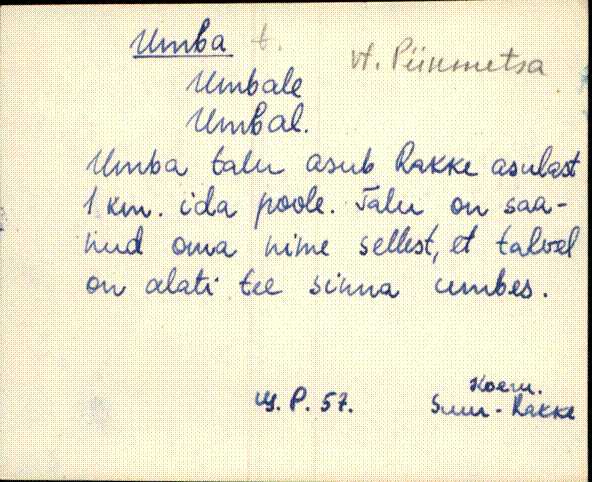 Umba t.
vt. Piinmetsa
Umbale
Umbal.
Umba talu asub Rakke asulast
1 km. ida poole. Talu on saa-
nud oma nime sellest, et talvel
on alati tee sinna umbes.
Koeru.
P. 57. Suur-Rakke